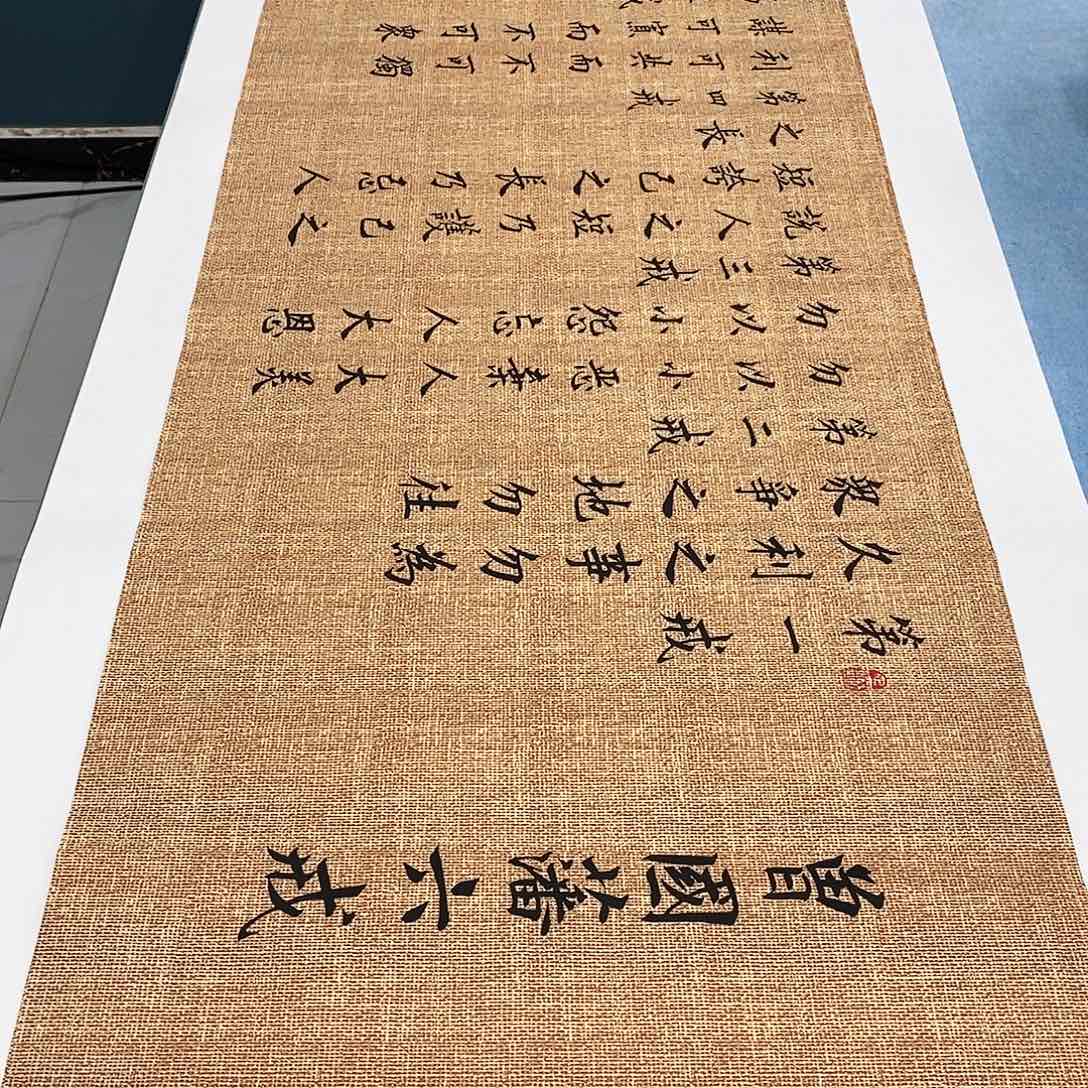 曾國藩六戒
第一戒
久利之事勿為
眾爭之地勿往
第二戒
勿以小惡棄人大美
勿以小怨忘人大恩
第三戒
說人之短乃護己之
短誇己之長乃忌人
之長
第四戒
利可共而不可獨
謀可寡而不可眾
戒